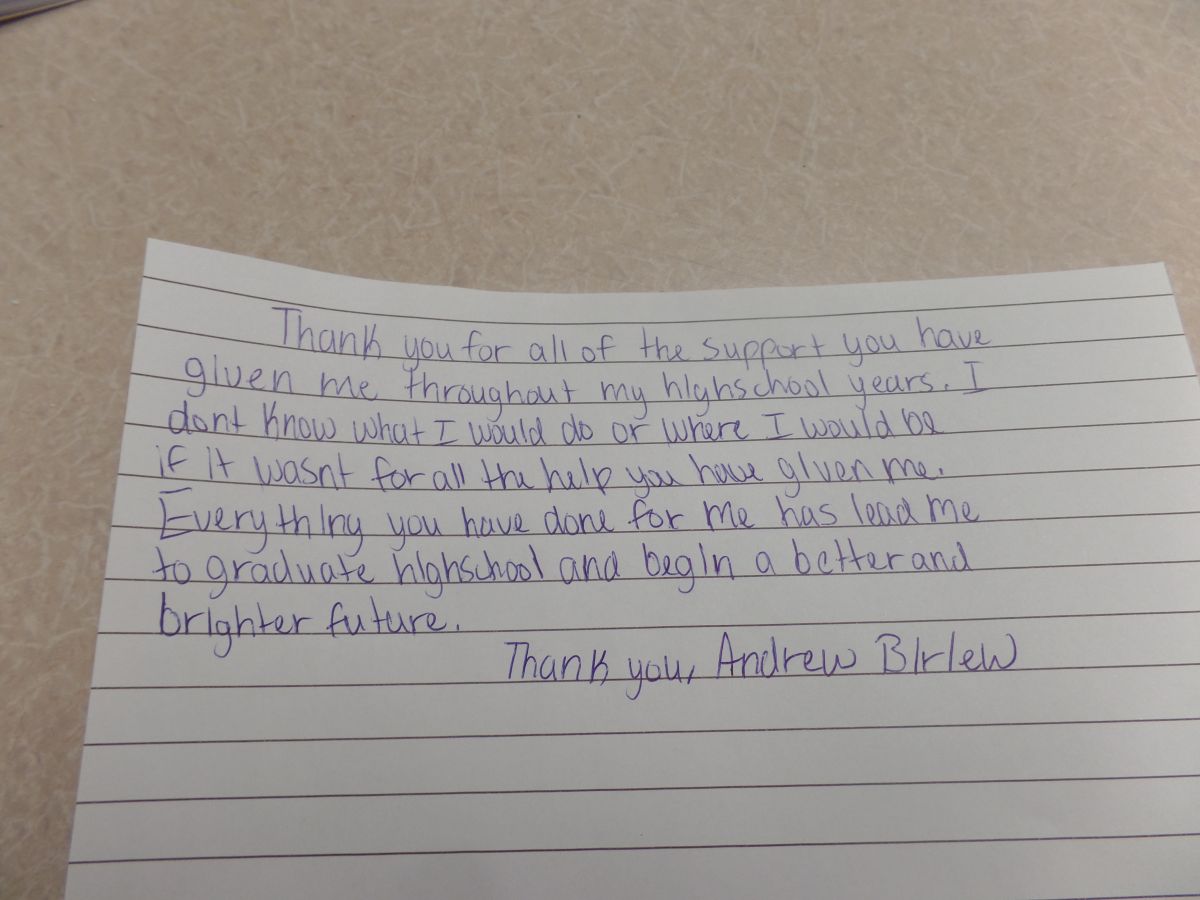 Thank you for all of the support you have
given me throughout my highschool years. I
dont know what I would do or where I would be
if it wasnt for all the help you have given me.
Everything you have done for me has lead me
to graduate highschool and begin a better and
brighter future.
Thank you, Andrew Birlew